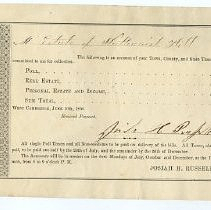 M Estate of
The following is an account of your Town, County, and State Taxes
committed to me for collection.
Poll,
Real Estate,
Personal Estate and Income,
Sum Total,
West Cambridge, June
Received Payment,
All single Poll Taxes and all Non-residents to be paid on delivery of the bills. All Taxes,
to be paid on or before the 24th of July, and the remainder by the 24th of December.
The Assessors will be in session on the first Mondays of July, October and December, at the
from 6 to 9 o'clock P. M.
JOSIAH H. RUSSELL